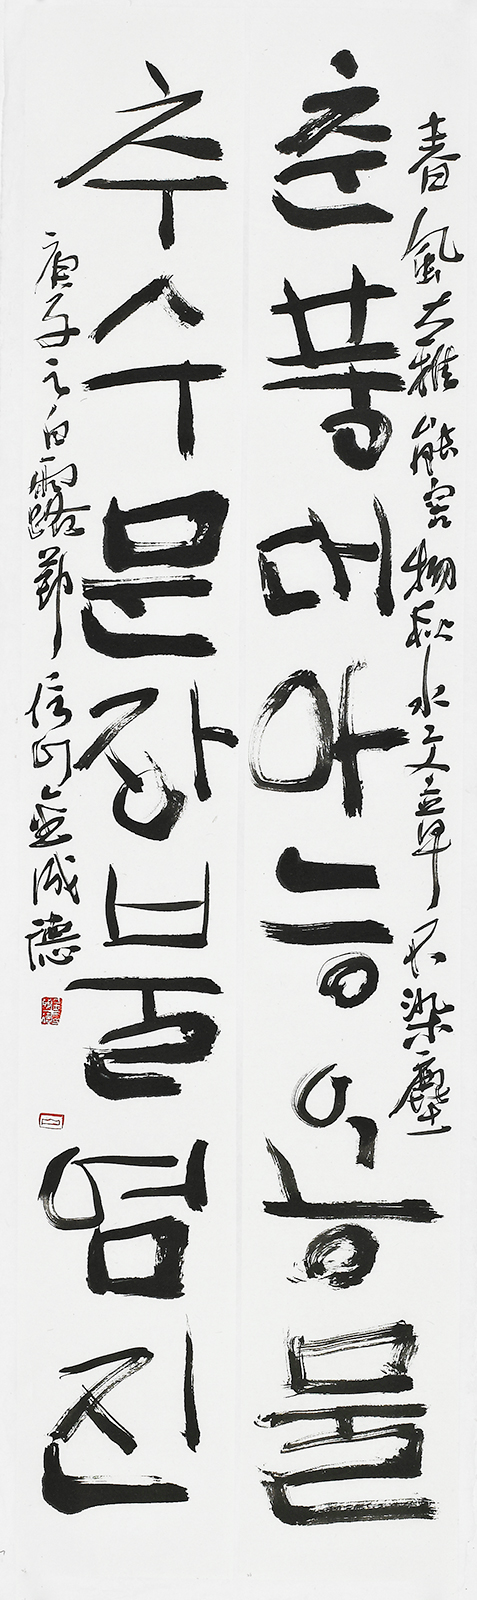 春風大雅能容物秋水文章不染塵
춘풍대아능용물
추수문장불염진
庚子之白露節 信 金成德